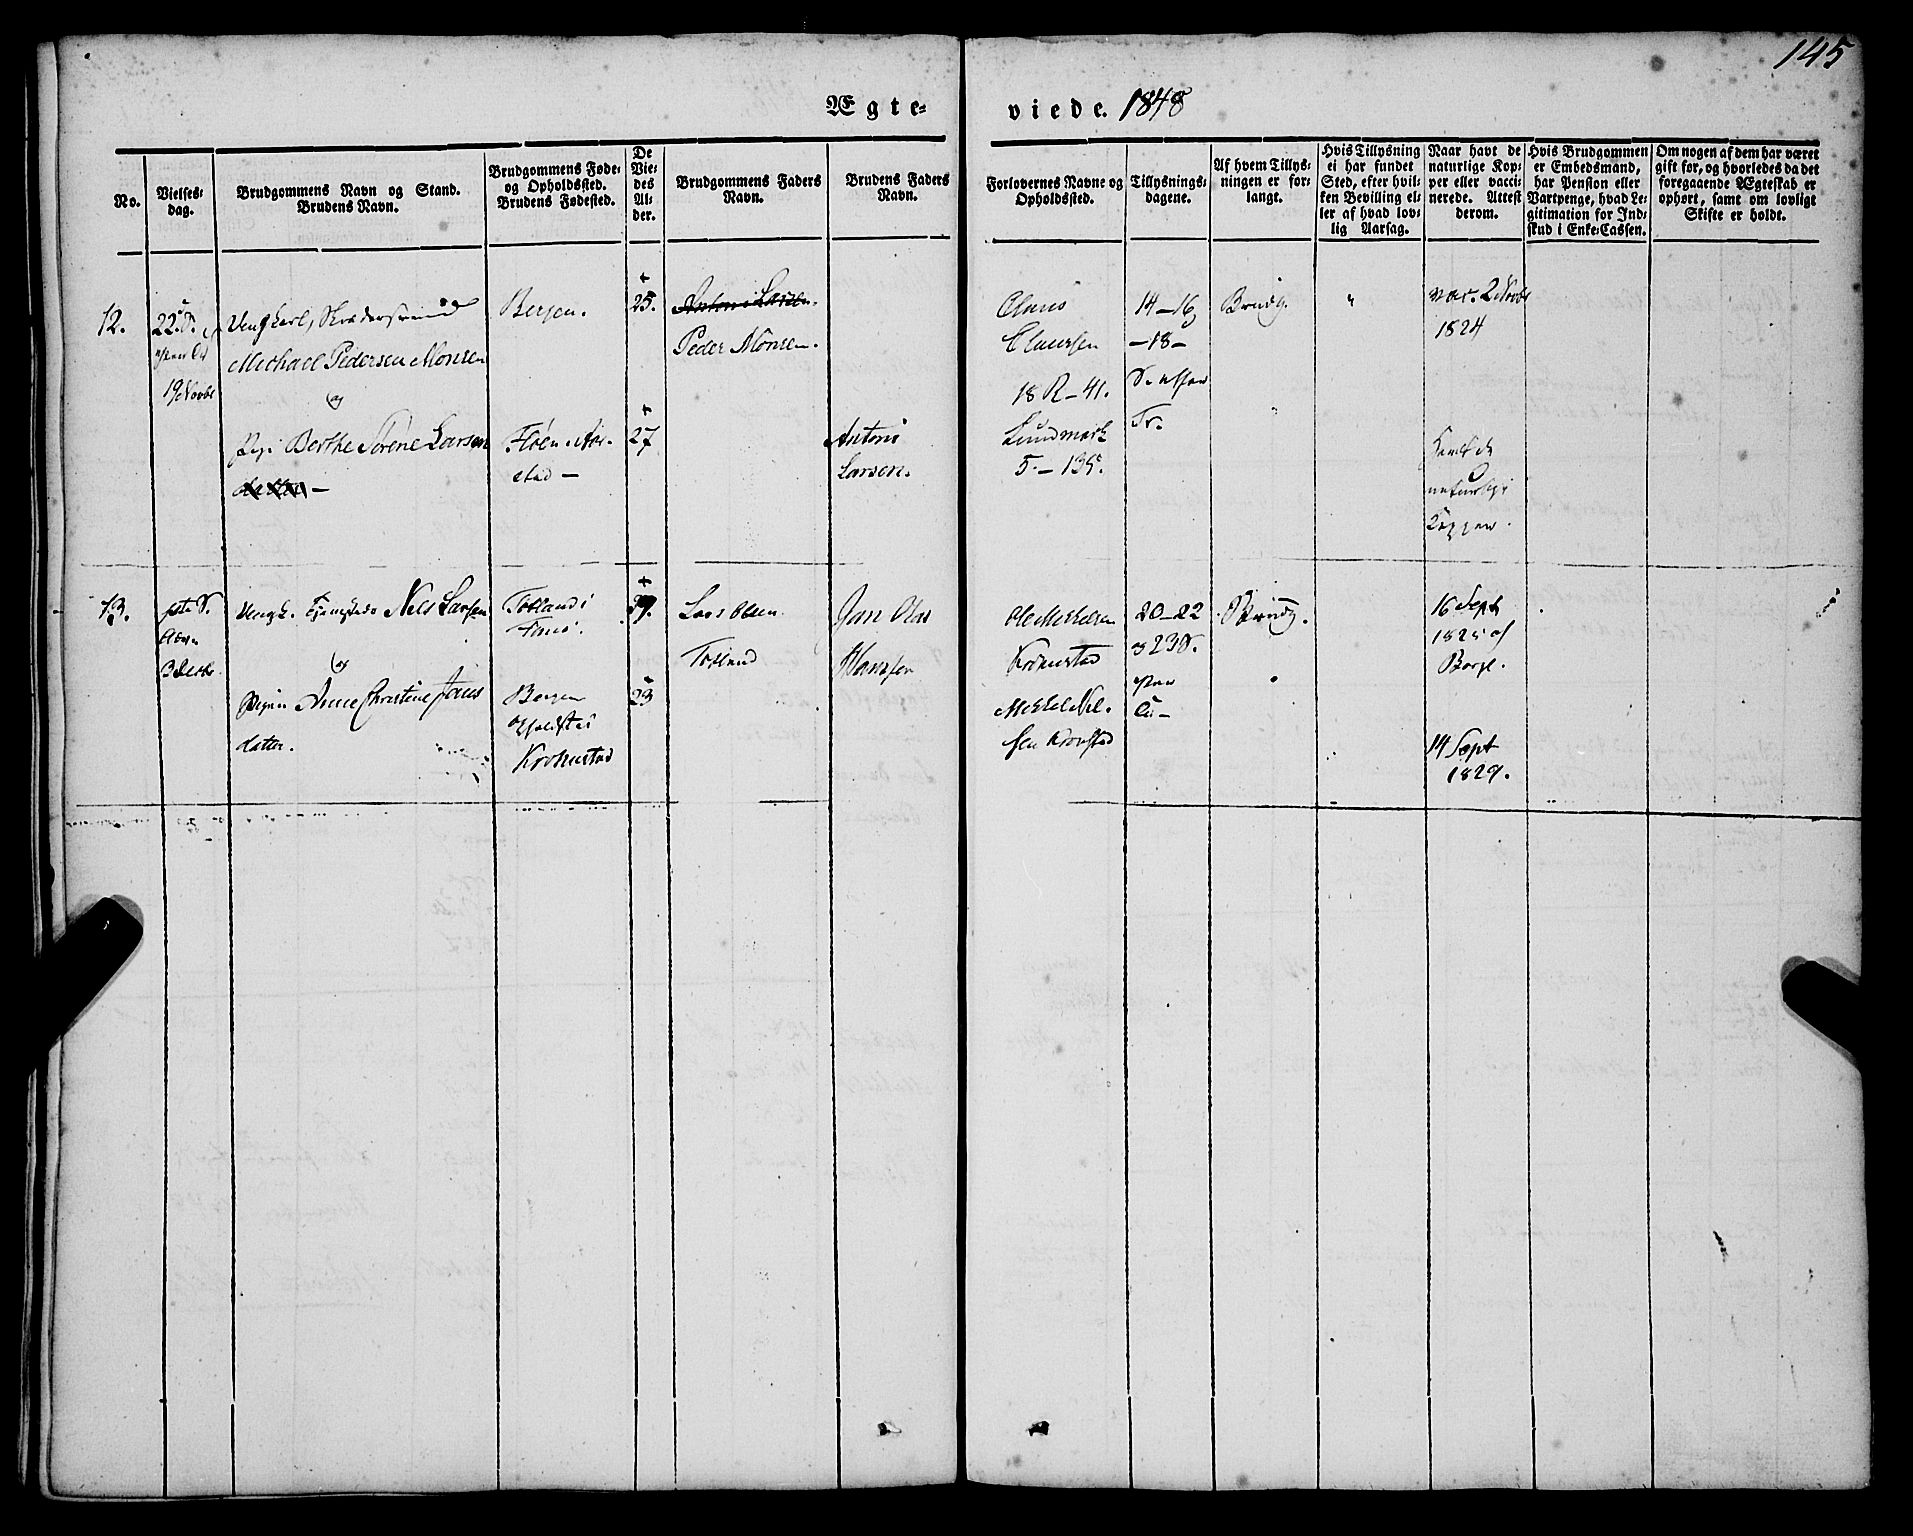 145
Ægte-
viede. 1848
No.
Vielses-
dag.
Brudgommens Navn og Stand.
Brudens Navn.
Brudgommens Føde-
og Opholdssted.
Brudens Fødested.
De
Vie-
des
Al-
der.
Brudgommens Faders
Navn.
Brudens Faders
Navn.
Forlovernes Navne og
Opholdssted.
Tillysnings-
dagene.
Af hvem Tillys-
ningen er for-
langt.
Hvis Tillysning
ei har fundet
Sted, efter hvil-
ken Bevilling el-
ler af hvad lov-
lig Aarsag.
Naar havt de
naturlige Kop-
per eller vacci-
nerede. Attest
derom.
Hvis Brudgommen
er Embedsmand,
har Pension eller
Vartpenge, hvad Le-
gitimation for Ind-
skud i Enke-Cassen.
Om nogen af dem har været
gift før, og hvorledes da det
foregaaende Ægteskab er
ophørt, samt om lovligt
Skifte er holdt.
12.
22. S.
19 Novbr
Ungkarl,
Michael Pedersen Monsen
og
Pige Berthe Sørene Larsen
Bergen.
Fløen. Aar-
stad –
25.
27
Anton Larsen.
Peder Monsen.
Anton
Larsen.
Claus
Claussen
18 R – 41.
Lundmark
5. – 135.
14 – 16
– 18 –
Tr.
Brudg.
"
vac. 2 Novbr
1824
naturlige
Kopper.
13.
3 Decbr.
Ungk. Nels Larsen
og
Pigen Anne Christine Jans
datter.
Fane.
Bergen
Kronstad
29.
23
Lars Olsen
Jan Olai
Hansen
Ole Mikkelsen
Kronstad
Mikkel Nil-
sen Kronstad
20 – 22
og 23 S.
Brudg.
16 Sept
1825 af
14 Sept
1829.